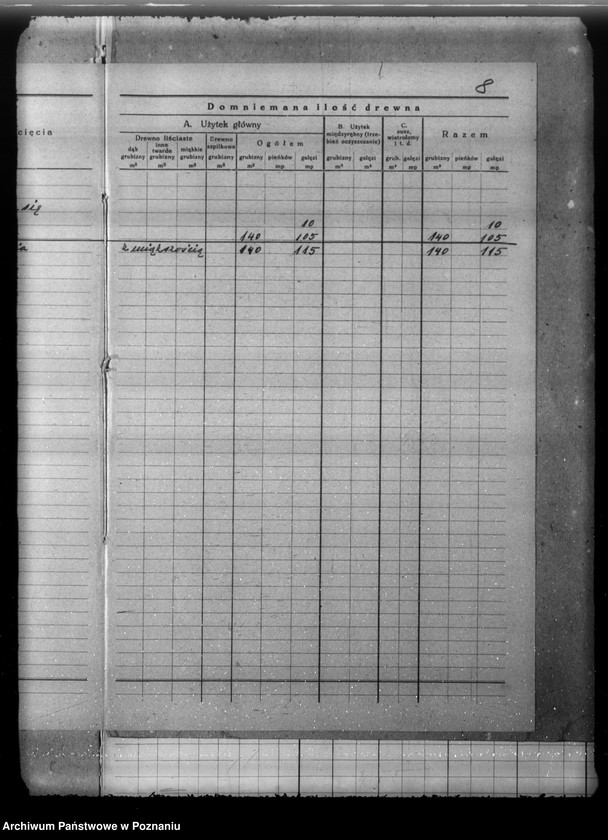 8
Domniemana ilość drewna
cięcia
A. Użytek główny
B. Użytek międzyrębny (trzebież oczyszczanie)
C. susz, wiatrołomy i t. d.
Razem
Drewno liściaste
Drewno szpilkowe
Ogółem
dąb grubizny m³
inne twarde grubizny m³
miękkie grubizny m³
grubizny m³
grubizny m³
pieńków mp
gałęzi mp
grubizny m³
gałęzi mp
grub. m³
gałęzi mp
grubizny m³
pieńków mp
gałęzi mp
się
10 10
140 105 140 105
z miąższością 140 115 140 115
Archiwum Państwowe w Poznaniu